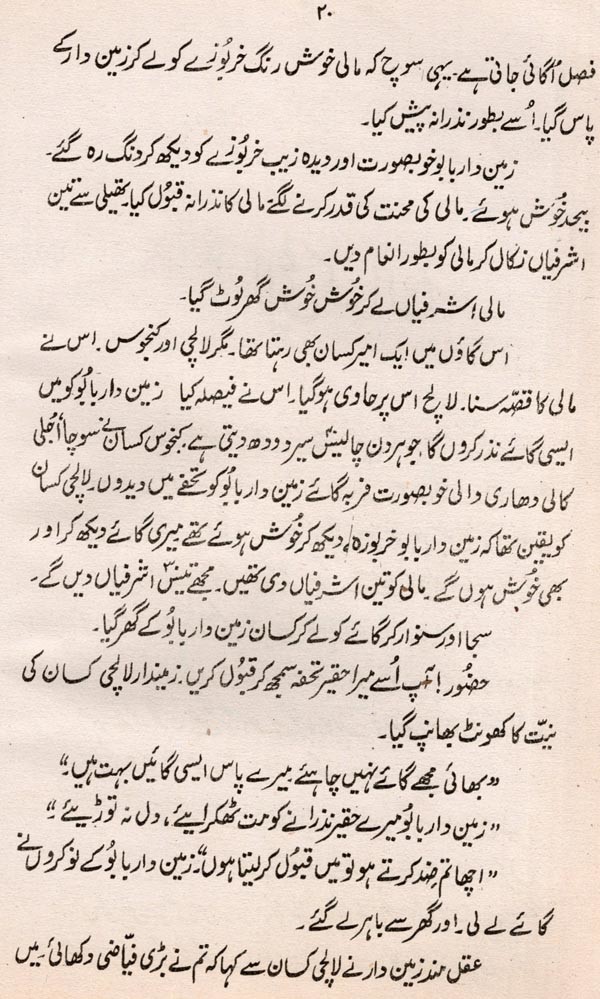 ۲۰
فصل اُگائی جاتی ہے۔ یہی سوچ کہ مالی خوش رنگ خربُوزے کو لے کر زمین دار کے
پاس گیا۔ اُسے بطور نذرانہ پیش کیا۔
زمین دار بابو خوبصورت اور دیدہ زیب خربُوزے کو دیکھ کر دنگ رہ گئے۔
بیحد خُوش ہوئے۔ مالی کی محنت کی قدر کرنے لگے۔ مالی کا نذرانہ قبُول کیا۔ تھیلی سے تین
اشرفیاں نکال کر مالی کو بطور انعام دیں۔
مالی اشرفیاں لے کر خُوش خُوش گھر لوُٹ گیا۔
اس گاؤں میں ایک امیر کسان بھی رہتا تھا۔ مگر لالچی اور کنجوس۔ اس نے
مالی کا قصّہ سنا۔ لالچ اس پر حاوی ہوگیا۔ اس نے فیصلہ کیا زمین دار بابُو کو میں
ایسی گائے نذر کروں گا جو ہر دن چالیس سیر دودھ دیتی ہے۔ کنجوس کسان نے سوچا اُجلی
کالی دھاری والی خوبصورت فربہ گائے زمین دار بابُو کو تحفے میں دیدوں۔ لالچی کسان
کو یقین تھا کہ زمین دار بابو خربوزہ دیکھ کر خُوش ہوئے تھے میری گائے دیکھ کر اور
بھی خُوش ہوں گے۔ مالی کو تین اشرفیاں دی تھیں۔ مجھے تیس اشرفیاں دیں گے۔
سجا اور سنوار کر گائے کو لے کر کسان زمین دار بابُو کے گھر گیا۔
حضُور! آپ اُسے میرا حقیر تحفہ سمجھ کر قبُول کریں۔ زمیندار لالچی کسان کی
نیّت کا کھونٹ بھانپ گیا۔
”بھائی مجھے گائے نہیں چاہئے۔ میرے پاس ایسی گائیں بہت ہیں۔“
”زمین دار بابُو میرے حقیر نذرانے کو مت ٹھکرایئے، دل نہ توڑیئے۔“
”اچھا تم ضد کرتے ہو تو میں قبُول کر لیتا ہوں“۔ زمین دار بابُو کے نوکروں نے
گائے لے لی۔ اور گھر سے باہر لے گئے۔
عقل مند زمین دار نے لالچی کسان سے کہا کہ تم نے بڑی فیّاضی دکھائی۔ میں